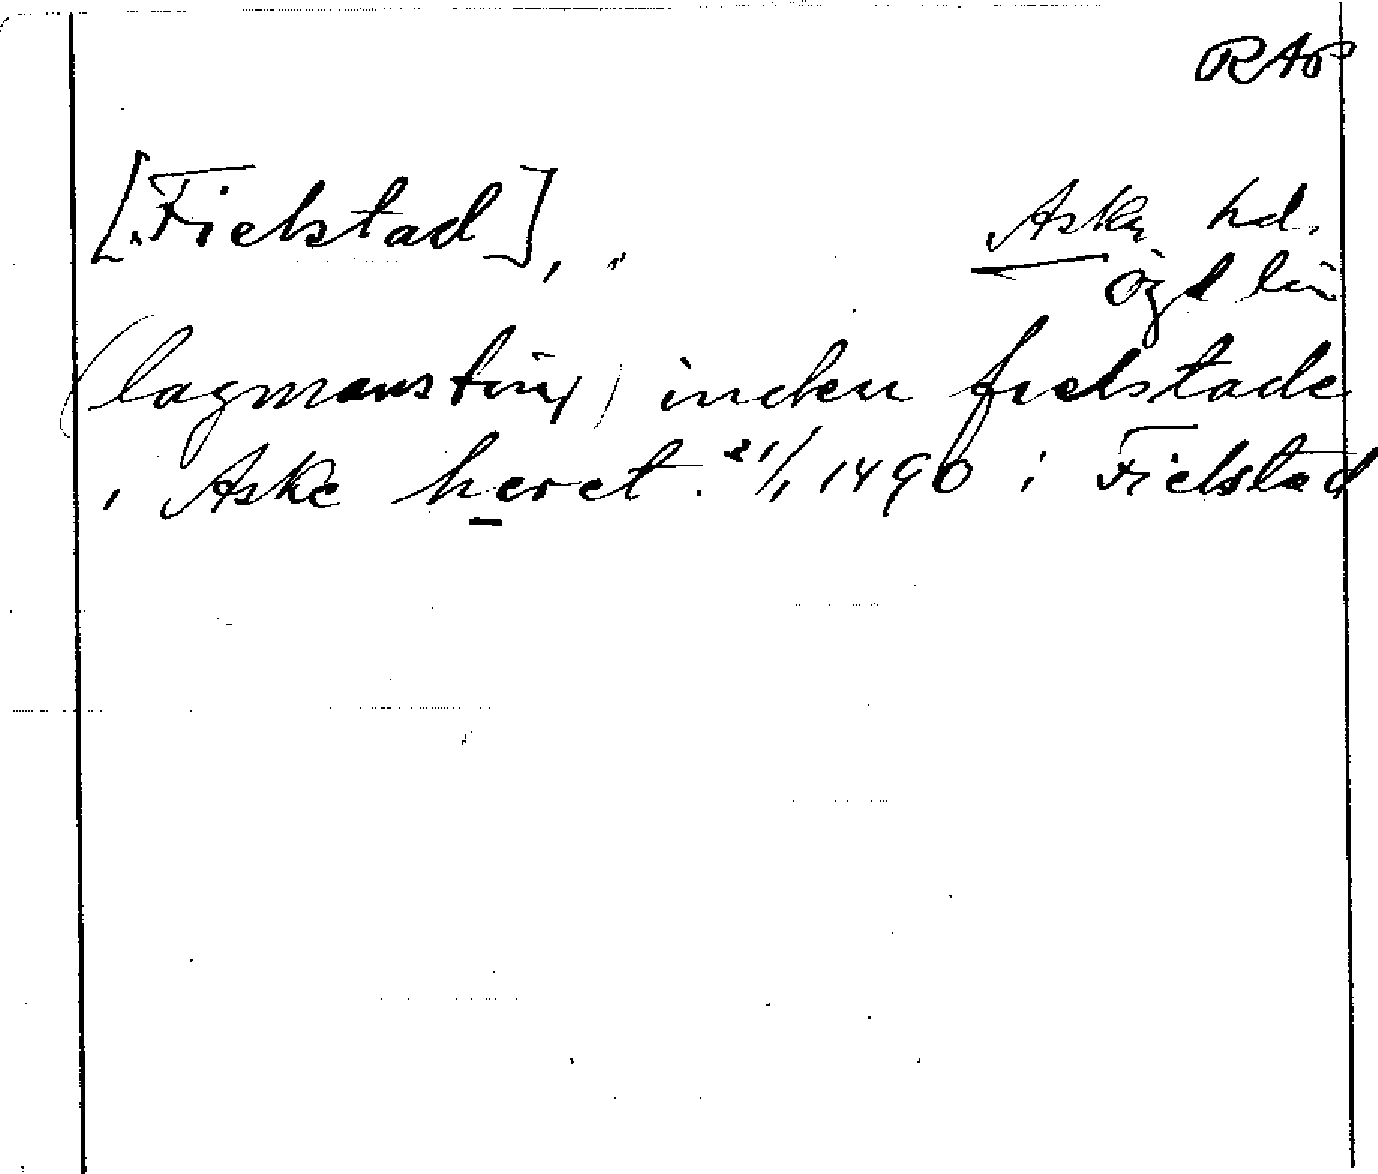 RAP
[Fielstad],
Aska hd.
Ögl län
(lagmansting) inden fielstade
i Aske heret. 21/1 1490 i Fielstad